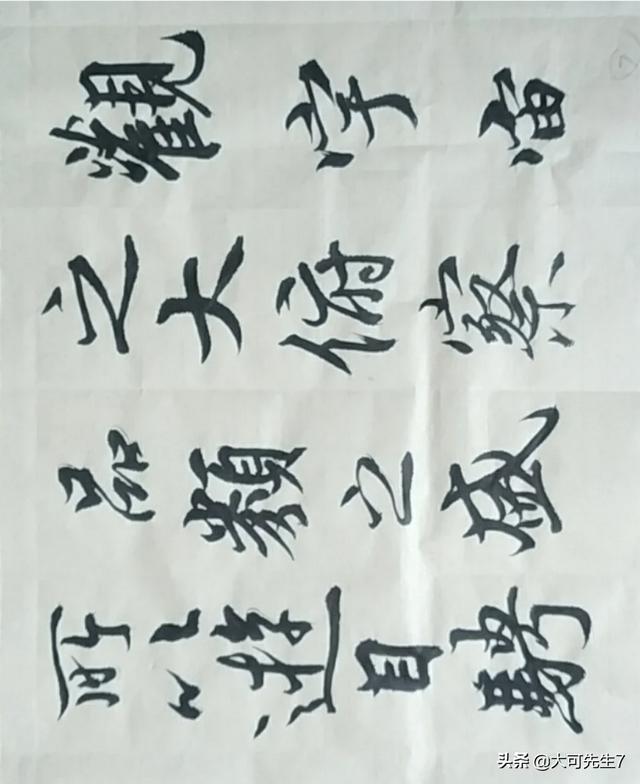 觀宇宙
之大俯察
品類之盛
所以遊目騁
头条 @大可先生7